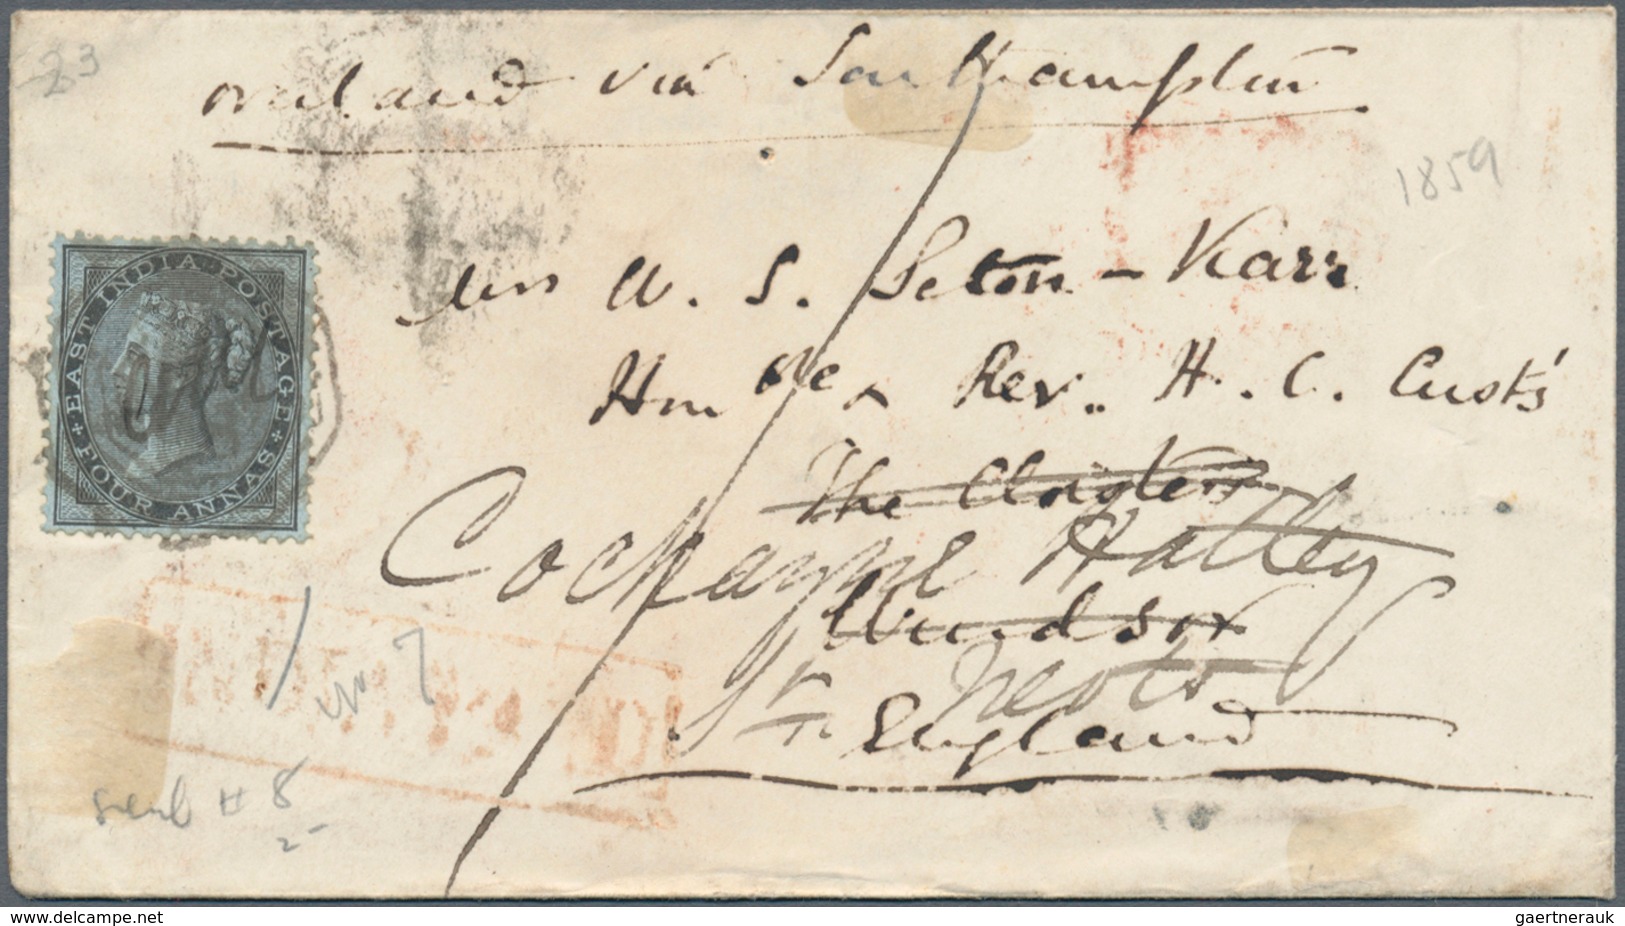 23
overland via Southampton
1859
EAST INDIA POSTAGE
FOUR ANNAS
Mrs W. S. Seton-Karr
Honble & Rev. H. C. Cust's
The Cloisters
Cockayne Hatley
Windsor
St. Neots
England
8
2
delcampe.net
gaertnerauk